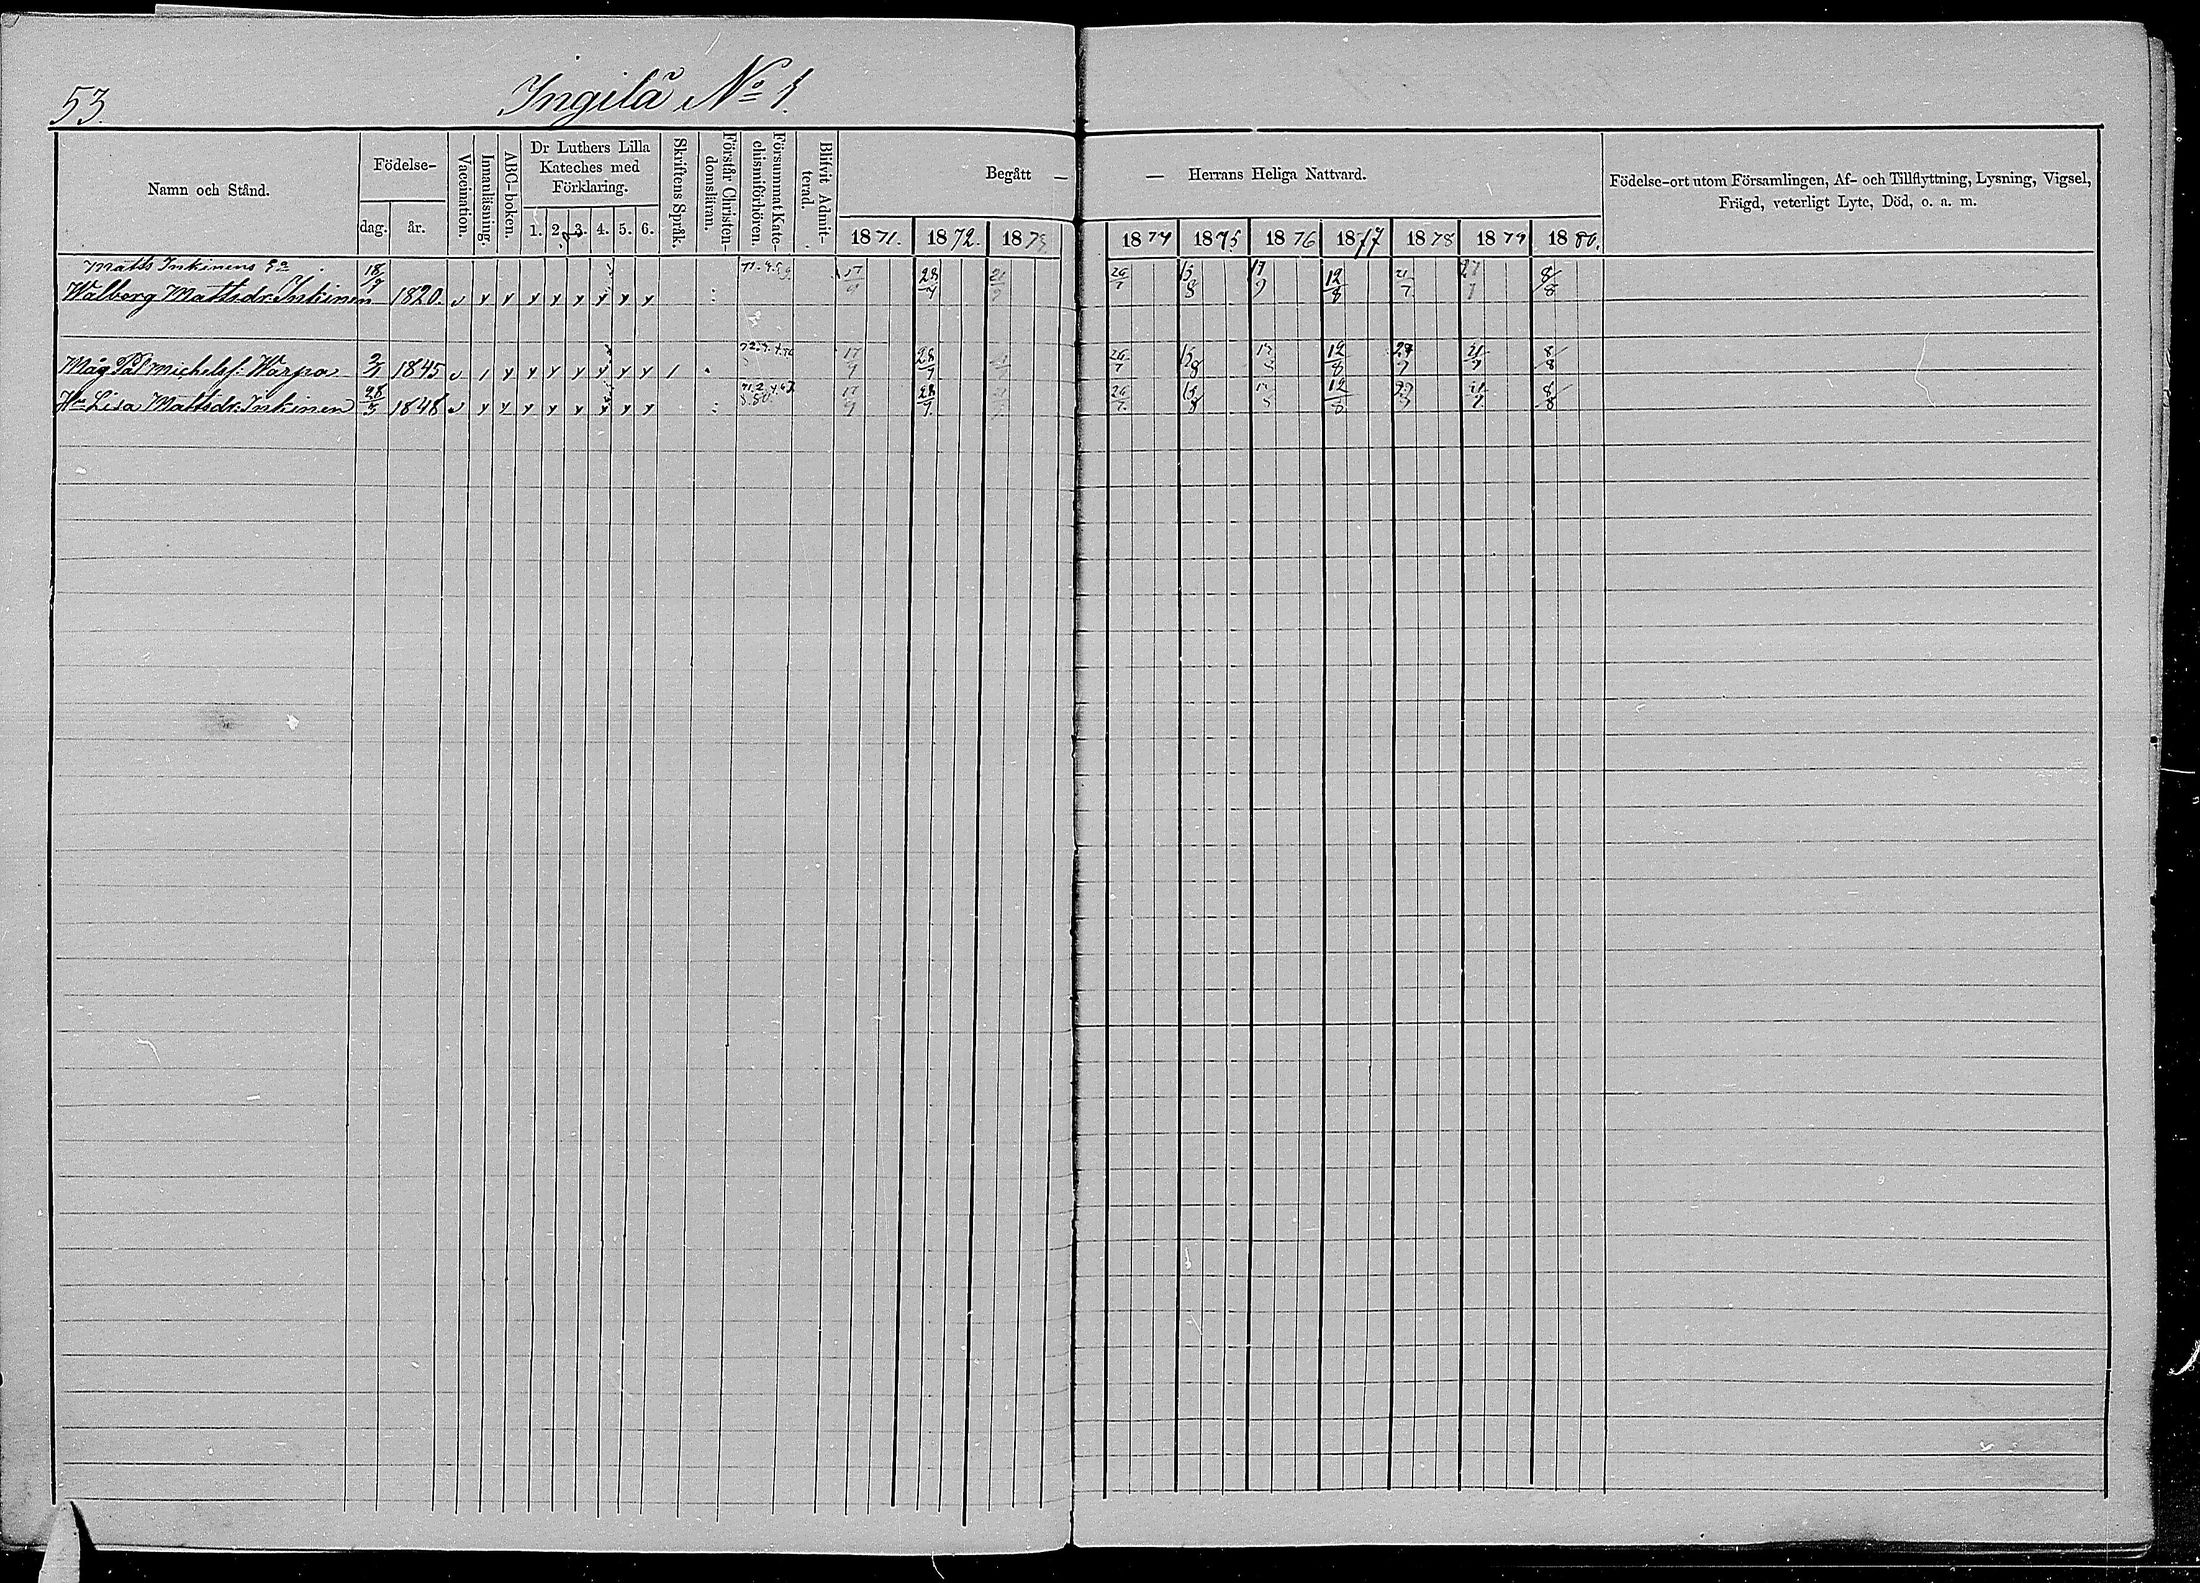 53.
Ingilä No 1.
Namn och Stånd.
Födelse-
dag.
år.
Vaccination.
Innanläsning.
ABC-boken.
Dr Luthers Lilla
Kateches med
Förklaring.
1. 2. 3. 4. 5. 6.
Skriftens Språk.
Förstår Christen-
domsläran.
Försummat Kate-
chismiförhören.
Blifvit Admit-
terad.
Begått —
— Herrans Heliga Nattvard.
1871. 1872. 1873
1874 1875 1876 1877 1878 1879 1880.
Födelse-ort utom Församlingen, Af- och Tillflyttning, Lysning, Vigsel,
Friigd, veterligt Lyte, Död, o. a. m.
Matts Inkinens Ea
Walborg Mattsdr. Inkinen 18/9 1820. 17/9 28/7 26/7 15/8 17/9 12/8 21/7 8/8
Måg Pål Michelsf. Warpa 1845 17/9 28/7 26/7 15/8 12/8 21/7 8/8
Hu Lisa Mattsdr. Inkinen 28/5 1848 17/9 28/7 26/7 15/8 12/8 21/7 8/8